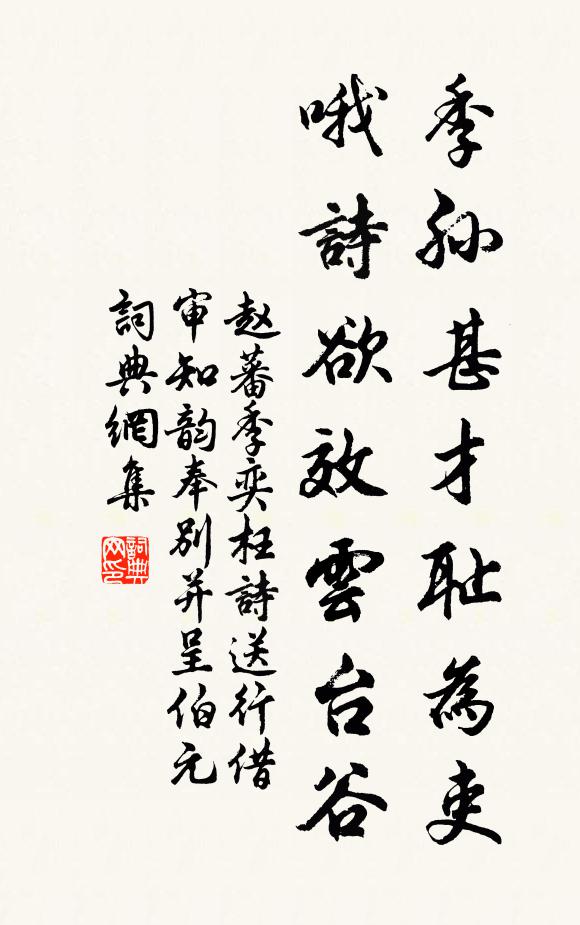 季孙甚才耻為吏
哦詩欲效雲台谷
赵蕃季奕枉詩送行借
审知韵奉别并呈伯元
詞典網集
詞典网印